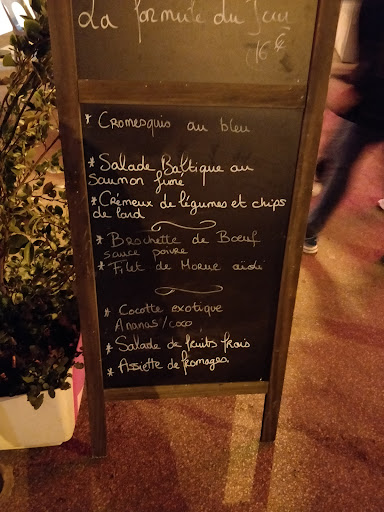 La formule du Jour
16 €
* Cromesquis au bleu
* Salade Baltique au
Saumon fumé
* Crémeux de légumes et chips
de lard
* Brochette de Bœuf
sauce poivre
* Filet de Morue aïoli
* Cocotte exotique
Ananas/coco
* Salade de fruits frais
* Assiette de fromages